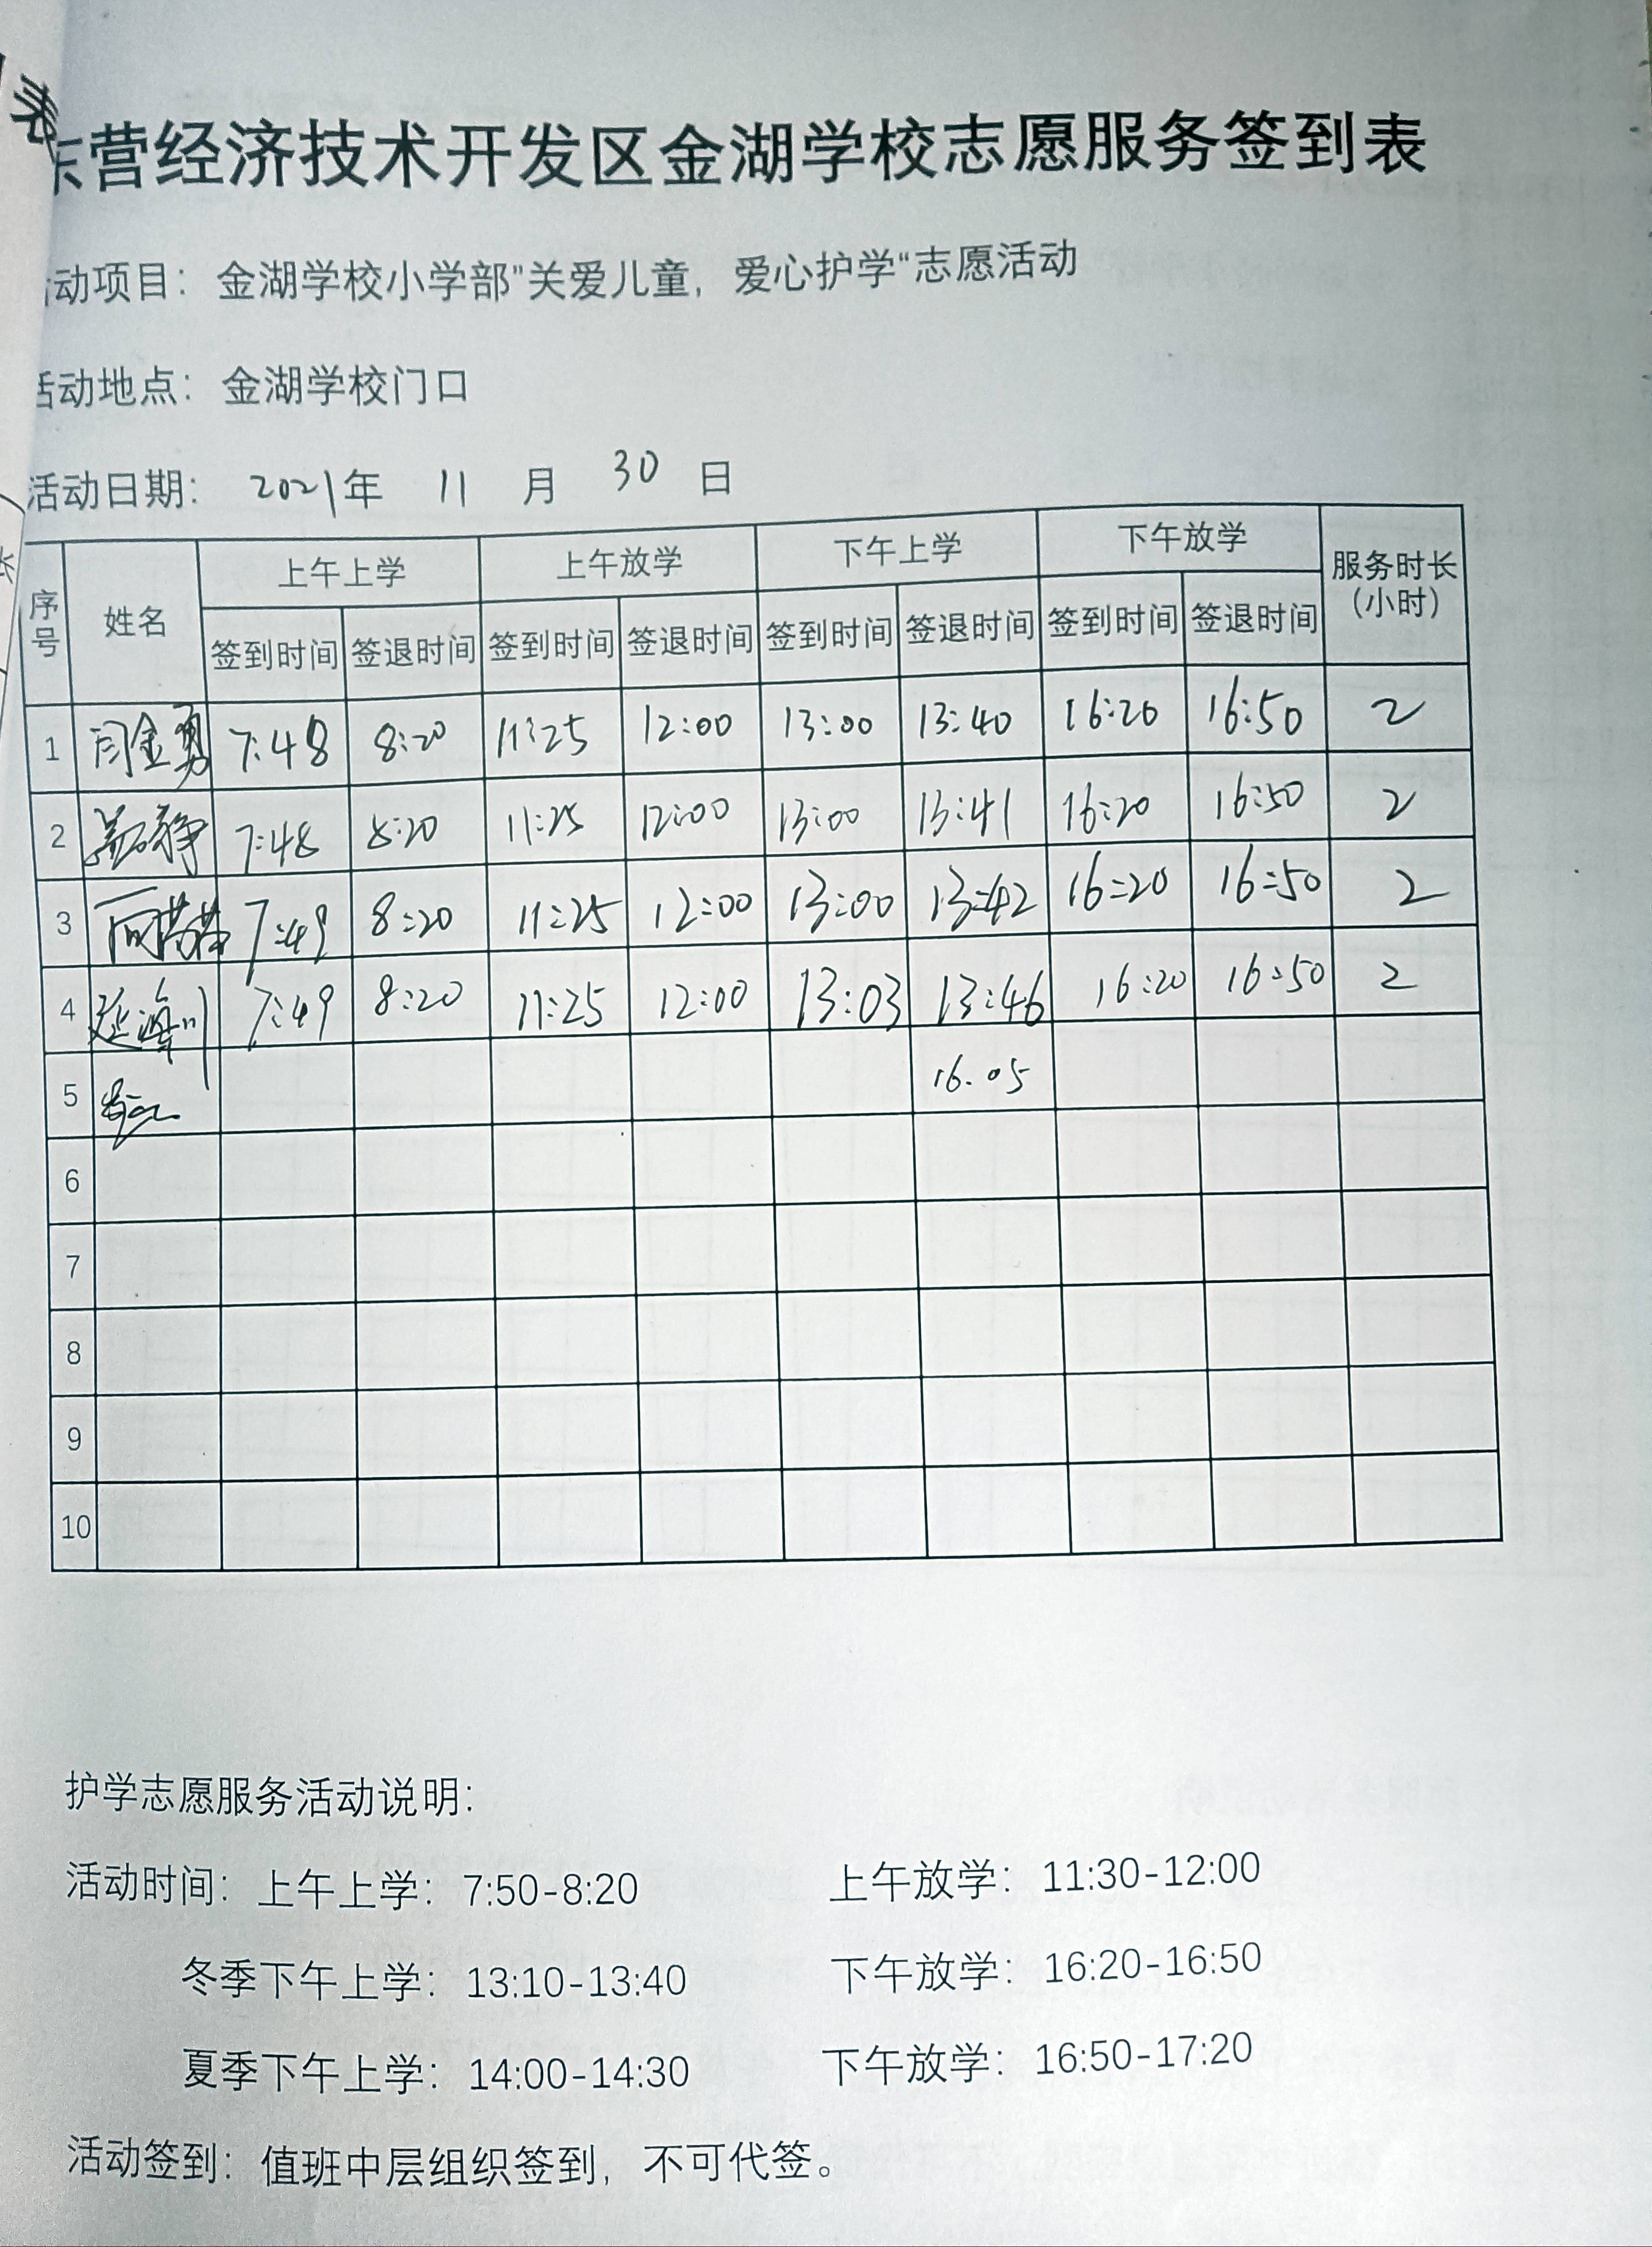 表
东营经济技术开发区金湖学校志愿服务签到表
活动项目：金湖学校小学部"关爱儿童，爱心护学"志愿活动
活动地点：金湖学校门口
活动日期：2021年 11 月 30 日
序号 姓名 上午上学 上午放学 下午上学 下午放学 服务时长（小时）
签到时间 签退时间 签到时间 签退时间 签到时间 签退时间 签到时间 签退时间
1 闫金勇 7:48 8:20 11:25 12:00 13:00 13:40 16:20 16:50 2
2 7:48 8:20 11:25 12:00 13:00 13:41 16:20 16:50 2
3 7:49 8:20 11:25 12:00 13:00 13:42 16:20 16:50 2
4 7:49 8:20 11:25 12:00 13:03 13:46 16:20 16:50 2
5 16.05
6
7
8
9
10
护学志愿服务活动说明：
活动时间：上午上学：7:50-8:20 上午放学：11:30-12:00
冬季下午上学：13:10-13:40 下午放学：16:20-16:50
夏季下午上学：14:00-14:30 下午放学：16:50-17:20
活动签到：值班中层组织签到，不可代签。